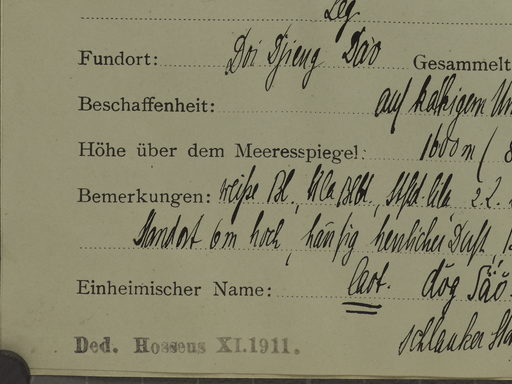 Leg.
Fundort: Doi Djieng Dao Gesammelt
Beschaffenheit: auf kalkigem
Höhe über dem Meeresspiegel: 1600 m (8
Bemerkungen: weiße Bl., lila
Standort 6 m hoch, häufig, herrlicher Duft,
Einheimischer Name: Laot. dög
schlanker
Ded. Hosseus XI.1911.